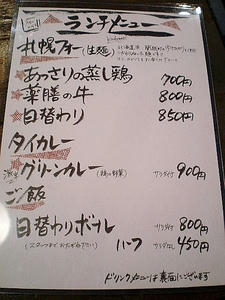 ランチメニュー
札幌フォー(生麺)
あっさりの蒸し鶏 700円
薬膳の牛 800円
日替わり 850円
タイカレー
グリーンカレー 900円
ご飯
日替わりボウル サラダ付 800円
(スタッフまでおたずね下さい) ハーフ サラダなし 450円
ドリンクメニューは裏面にございます